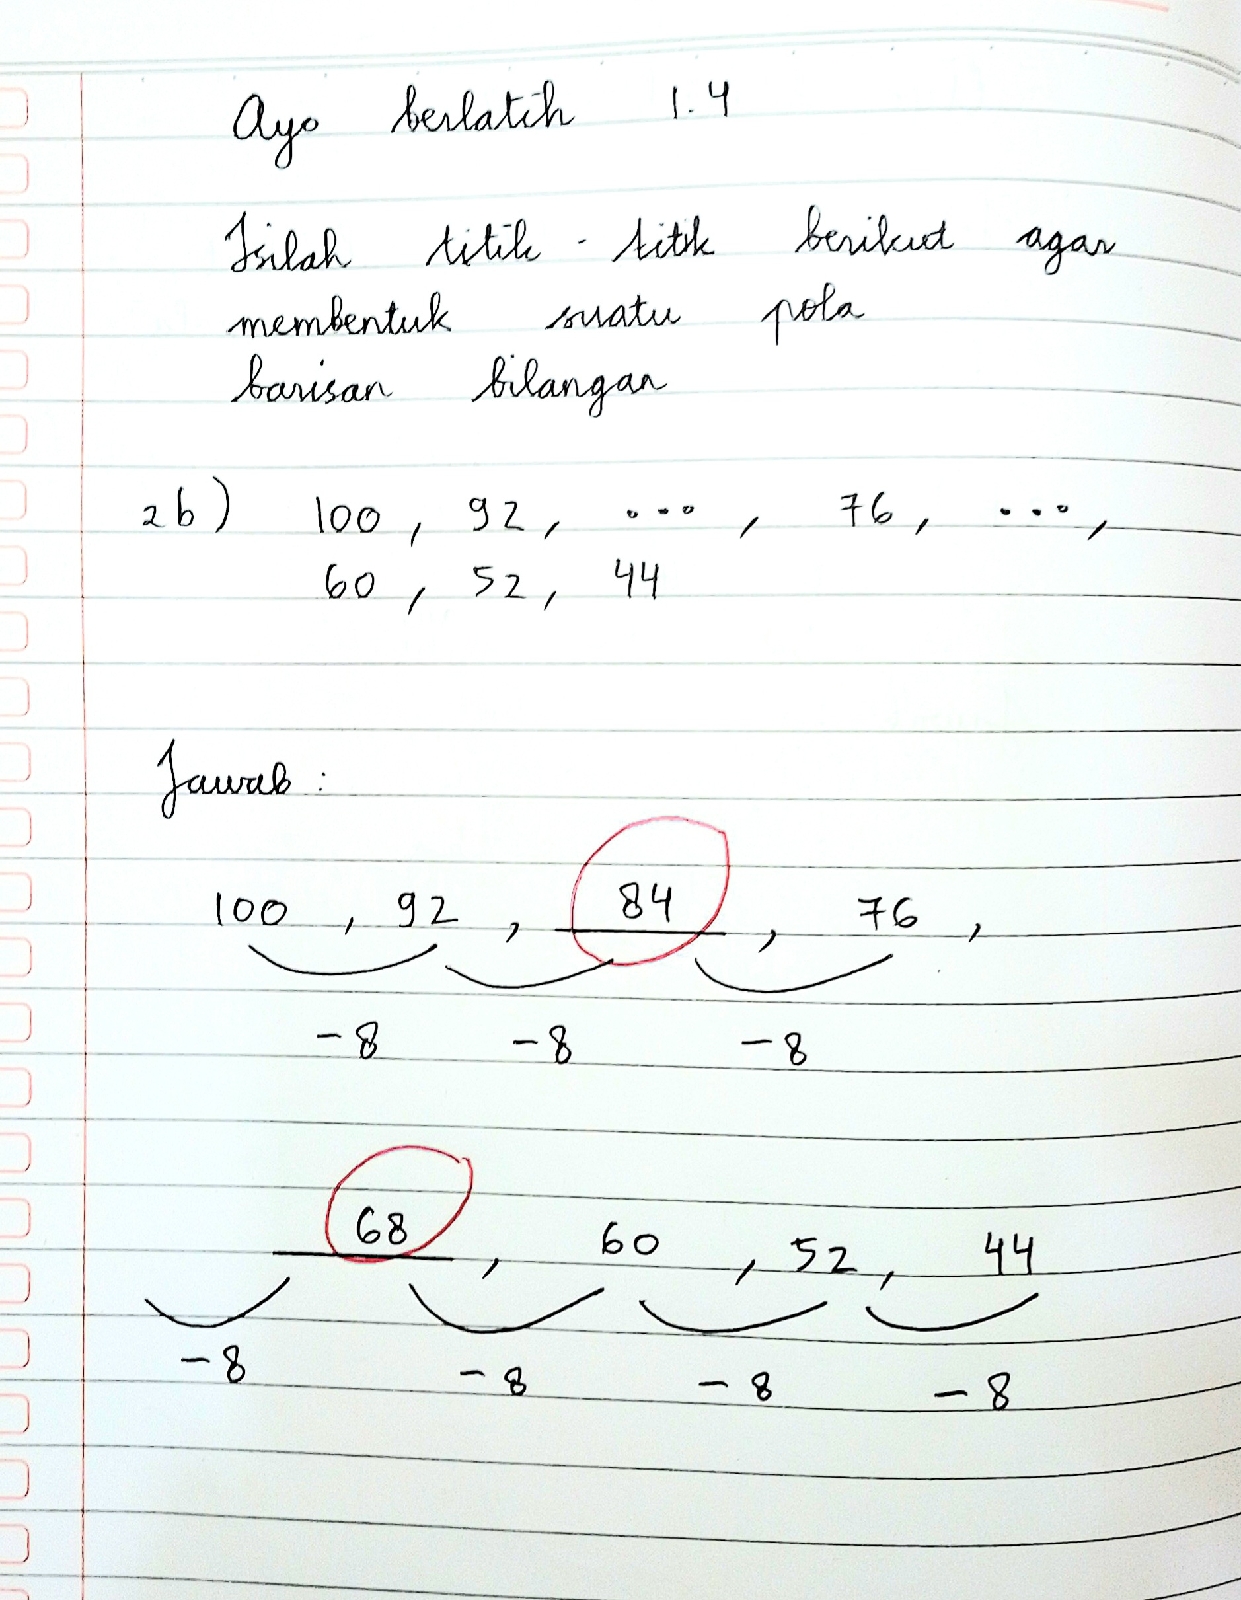 Ayo berlatih 1.4
Isilah titik - titik berikut agar
membentuk suatu pola
barisan bilangan
2b) 100, 92, ..., 76, ...,
60, 52, 44
Jawab :
100, 92, 84, 76,
-8 -8 -8
68, 60, 52, 44
-8 -8 -8 -8